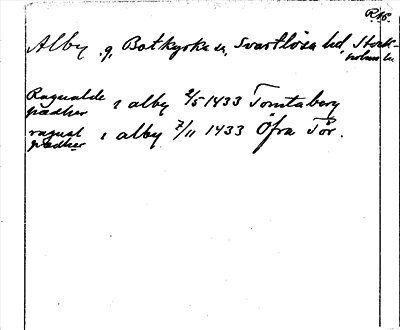 R.16.
Alby, g, Botkyrka sn, Svartlösa hd, Stock-
holms län
Ragualde
rædher i alby 2/5 1433 Tomtaberg
ragual
rædher i alby 7/11 1433 Öfra Tör.